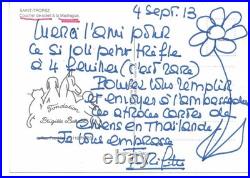 SAINT-TROPEZ
Coucher de soleil à la Madrague.
4 sept. 13
Merci l'ami pour
ce si joli petit trèfle
à 4 feuilles (c'est rare)
Pouvez vous remplir
et envoyer à l'ambassade
ces atroces cartes de
chiens en Thaïlande.
Je vous embrasse
Fondation
Brigitte Bardot